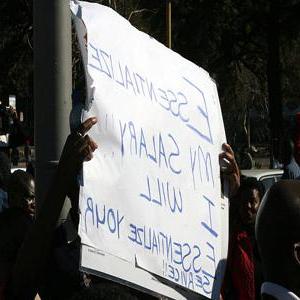 ESSENTIALIZE
MY SALARY!!
I WILL
ESSENTIALIZE YOUR
SERVICE!!